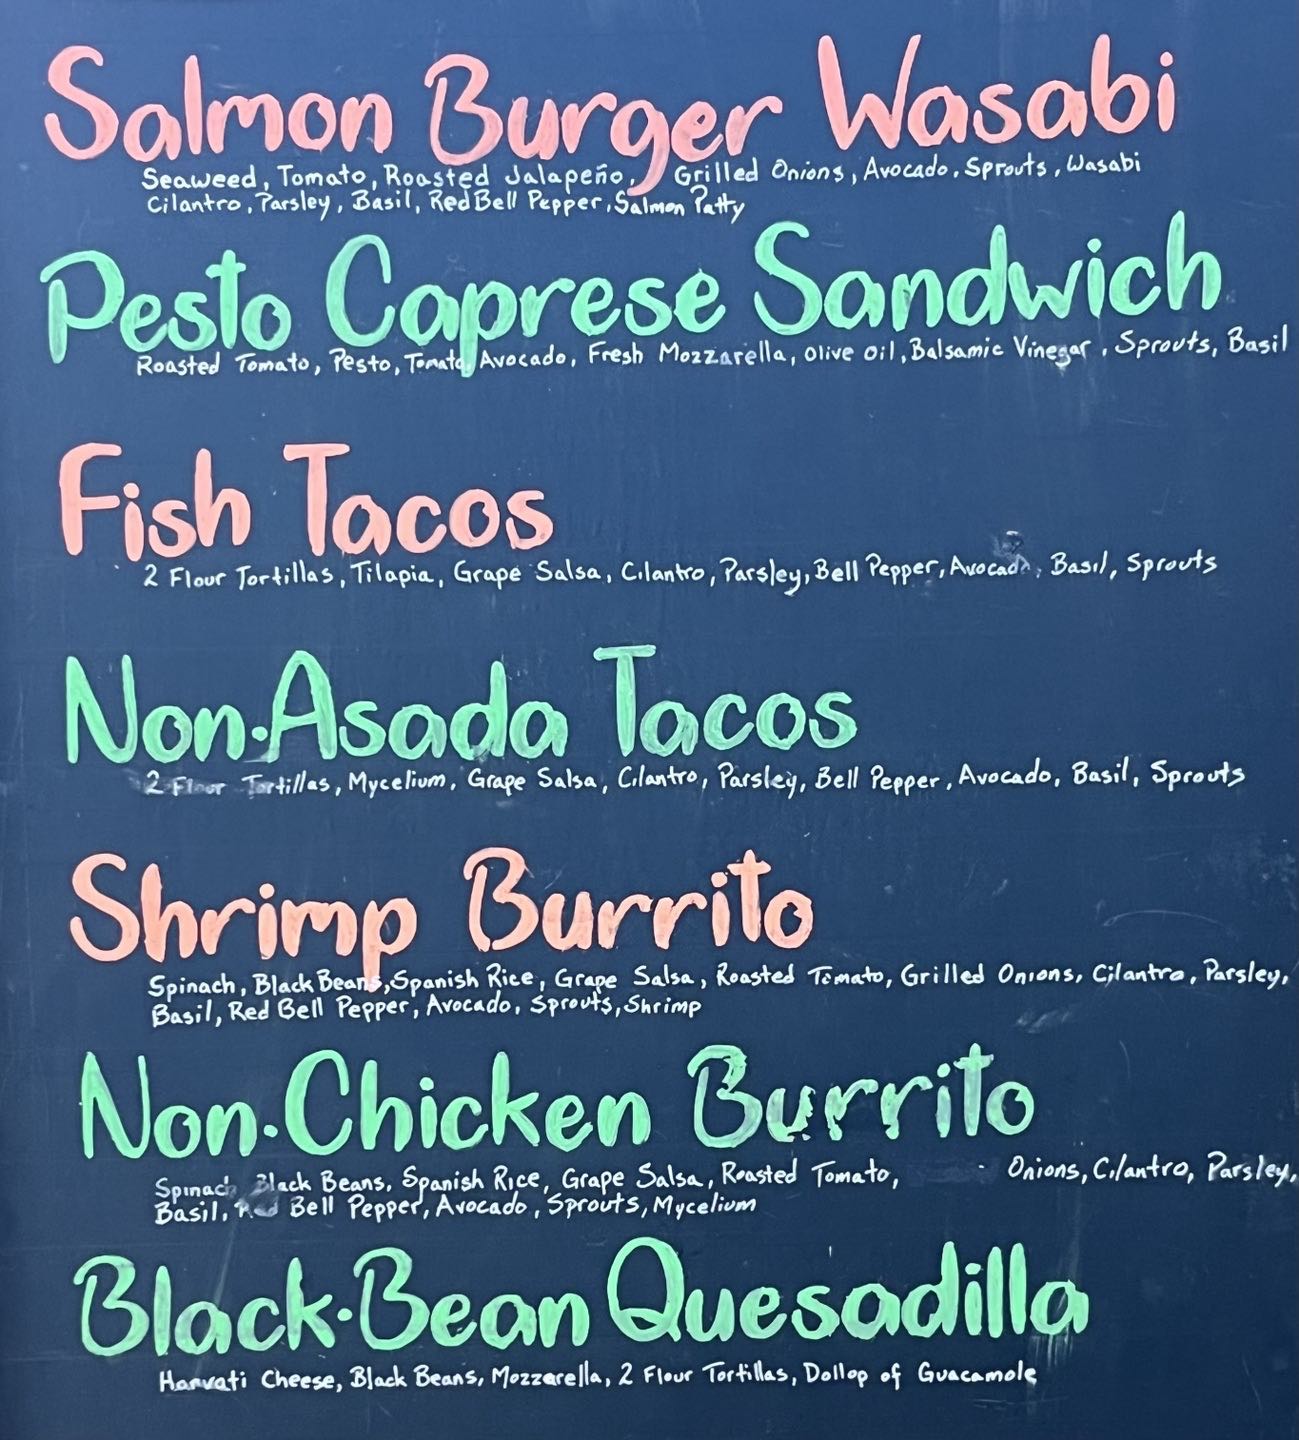 Salmon Burger Wasabi
Seaweed, Tomato, Roasted Jalapeño, Grilled Onions, Avocado, Sprouts, Wasabi
Cilantro, Parsley, Basil, Red Bell Pepper, Salmon Patty
Pesto Caprese Sandwich
Roasted Tomato, Pesto, Tomato, Avocado, Fresh Mozzarella, Olive Oil, Balsamic Vinegar, Sprouts, Basil
Fish Tacos
2 Flour Tortillas, Tilapia, Grape Salsa, Cilantro, Parsley, Bell Pepper, Avocado, Basil, Sprouts
Non-Asada Tacos
2 Flour Tortillas, Mycelium, Grape Salsa, Cilantro, Parsley, Bell Pepper, Avocado, Basil, Sprouts
Shrimp Burrito
Spinach, Black Beans, Spanish Rice, Grape Salsa, Roasted Tomato, Grilled Onions, Cilantro, Parsley,
Basil, Red Bell Pepper, Avocado, Sprouts, Shrimp
Non-Chicken Burrito
Spinach Black Beans, Spanish Rice, Grape Salsa, Roasted Tomato, Onions, Cilantro, Parsley,
Basil, Red Bell Pepper, Avocado, Sprouts, Mycelium
Black-Bean Quesadilla
Harvati Cheese, Black Beans, Mozzarella, 2 Flour Tortillas, Dollop of Guacamole